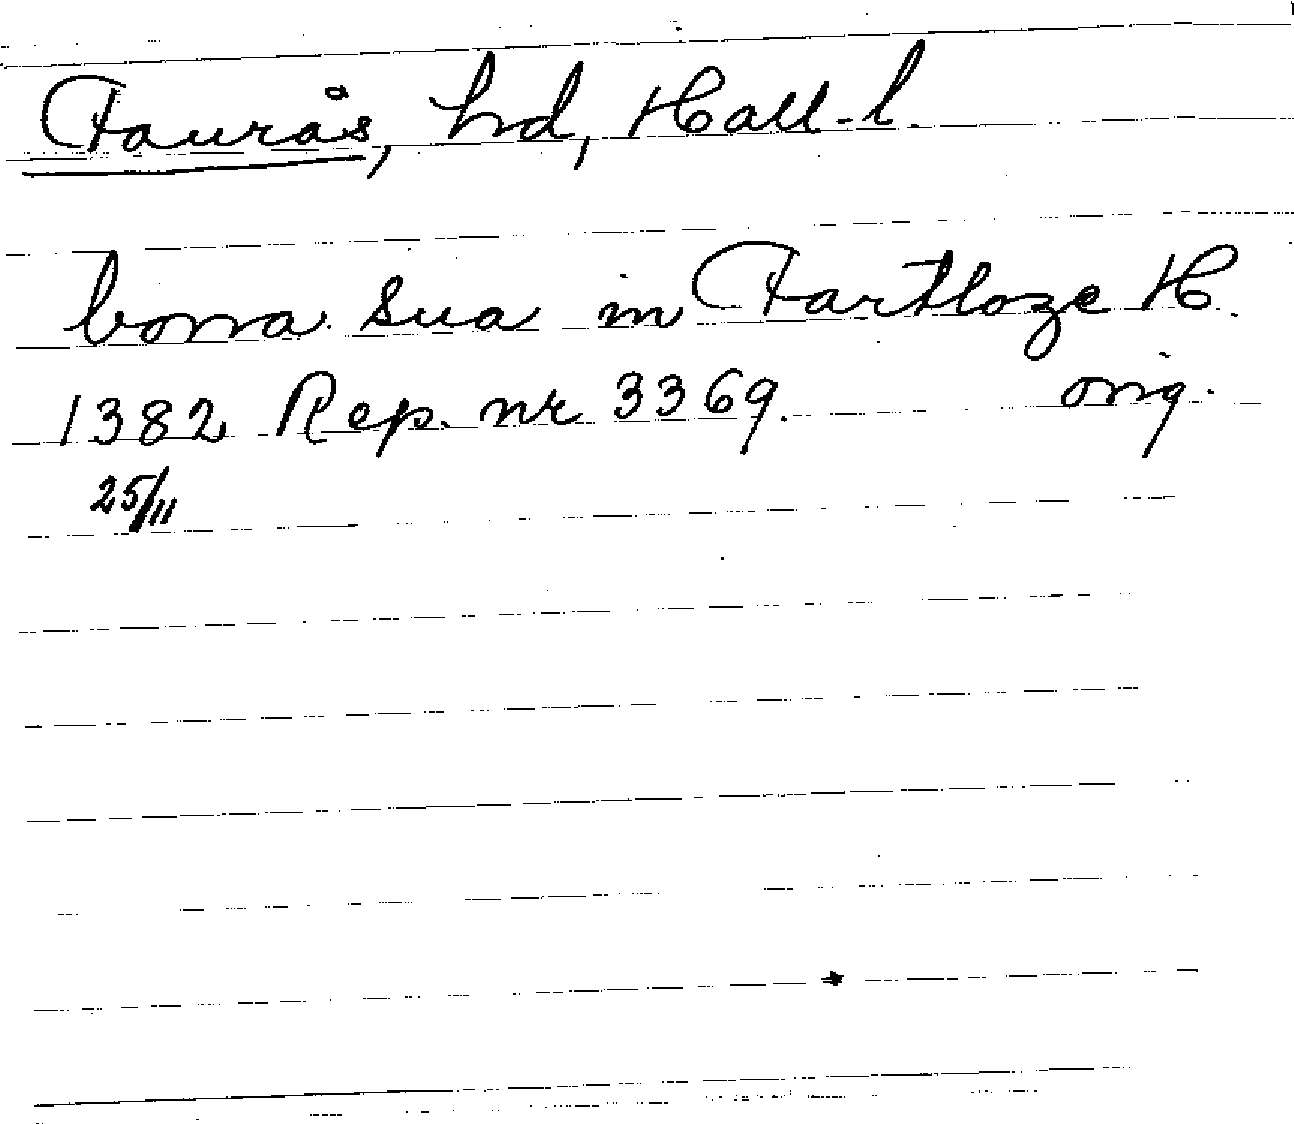 Faurås, hd, Hall-l.
bona sua in Fartloze H.
1382 Rep. nr 3369. orig.
25/11